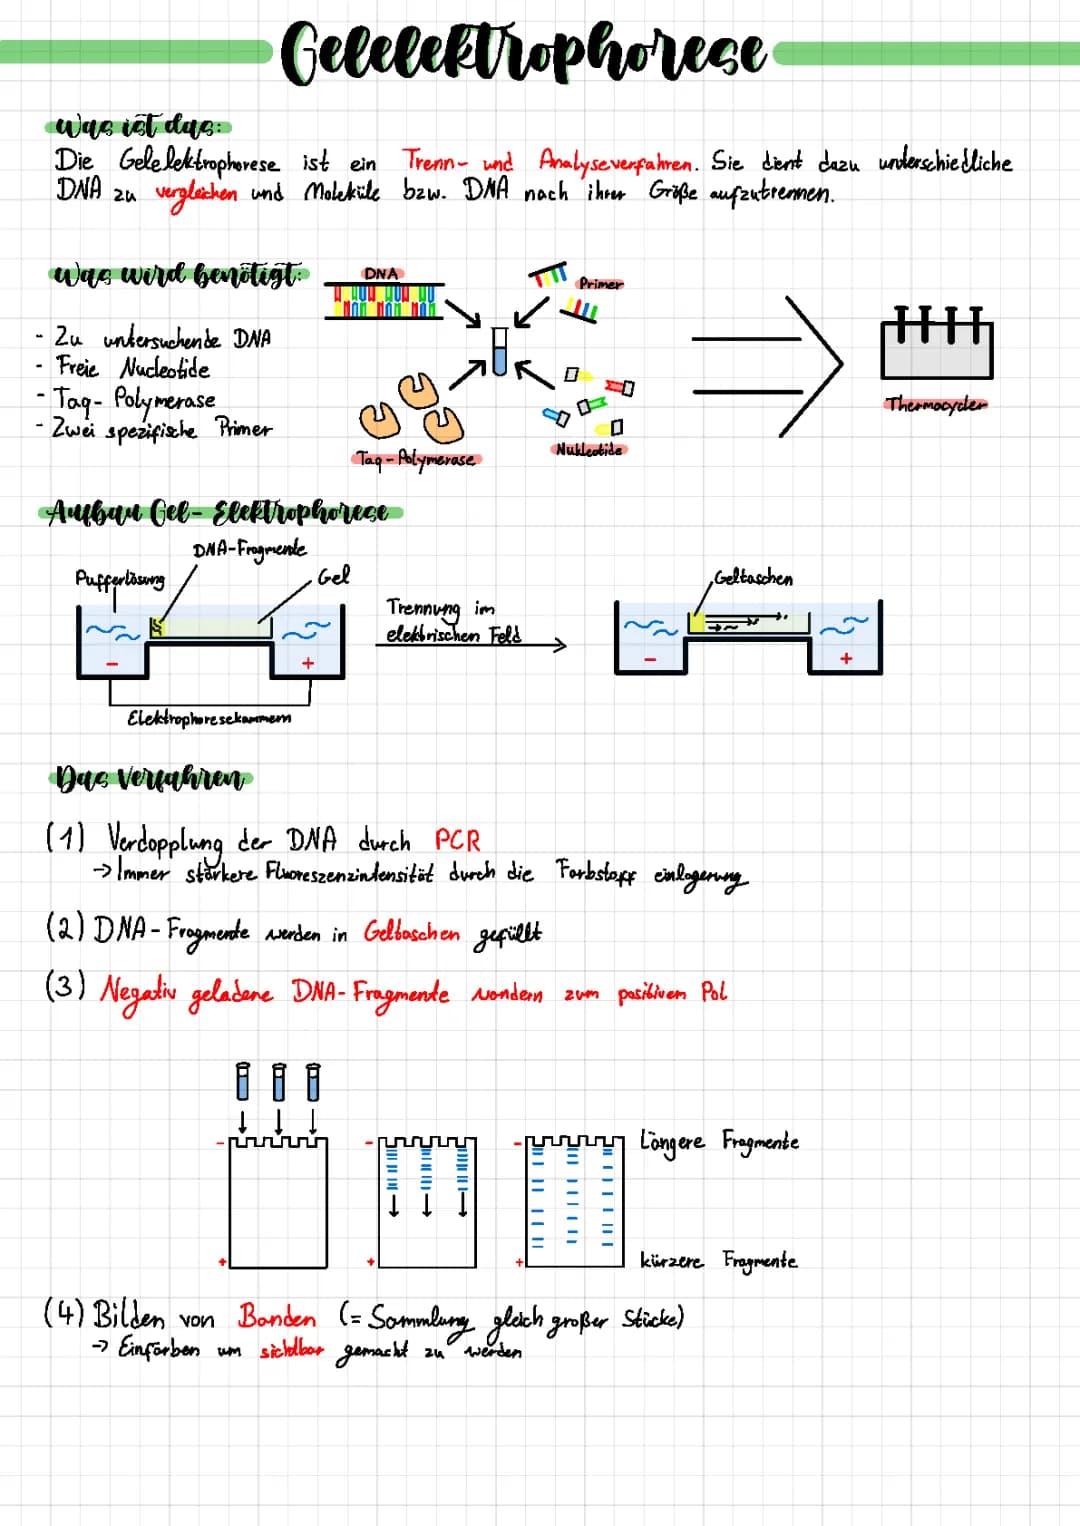 Gelelektrophorese
Was ist das:
Die Gelelektrophorese ist ein Trenn- und Analyseverfahren. Sie dient dazu unterschiedliche
DNA zu vergleichen und Moleküle bzw. DNA nach ihrer Größe aufzutrennen.
Was wird benötigt:
- Zu untersuchende DNA
- Freie Nucleotide
- Taq-Polymerase
- Zwei spezifische Primer
DNA
Primer
Taq-Polymerase
Nukleotide
Thermocycler
Aufbau Gel-Elektrophorese
DNA-Fragmente
Pufferlösung
Gel
- +
Elektrophoresekammern
Trennung im
elektrischen Feld
Geltaschen
- +
Das Verfahren
(1) Verdopplung der DNA durch PCR
→ Immer stärkere Fluoreszenzintensität durch die Farbstoff einlagerung
(2) DNA-Fragmente werden in Geltaschen gefüllt
(3) Negativ geladene DNA-Fragmente wandern zum positiven Pol
- - - Längere Fragmente
+ + + kürzere Fragmente
(4) Bilden von Banden (= Sammlung gleich großer Stücke)
→ Einfärben um sichtbar gemacht zu werden